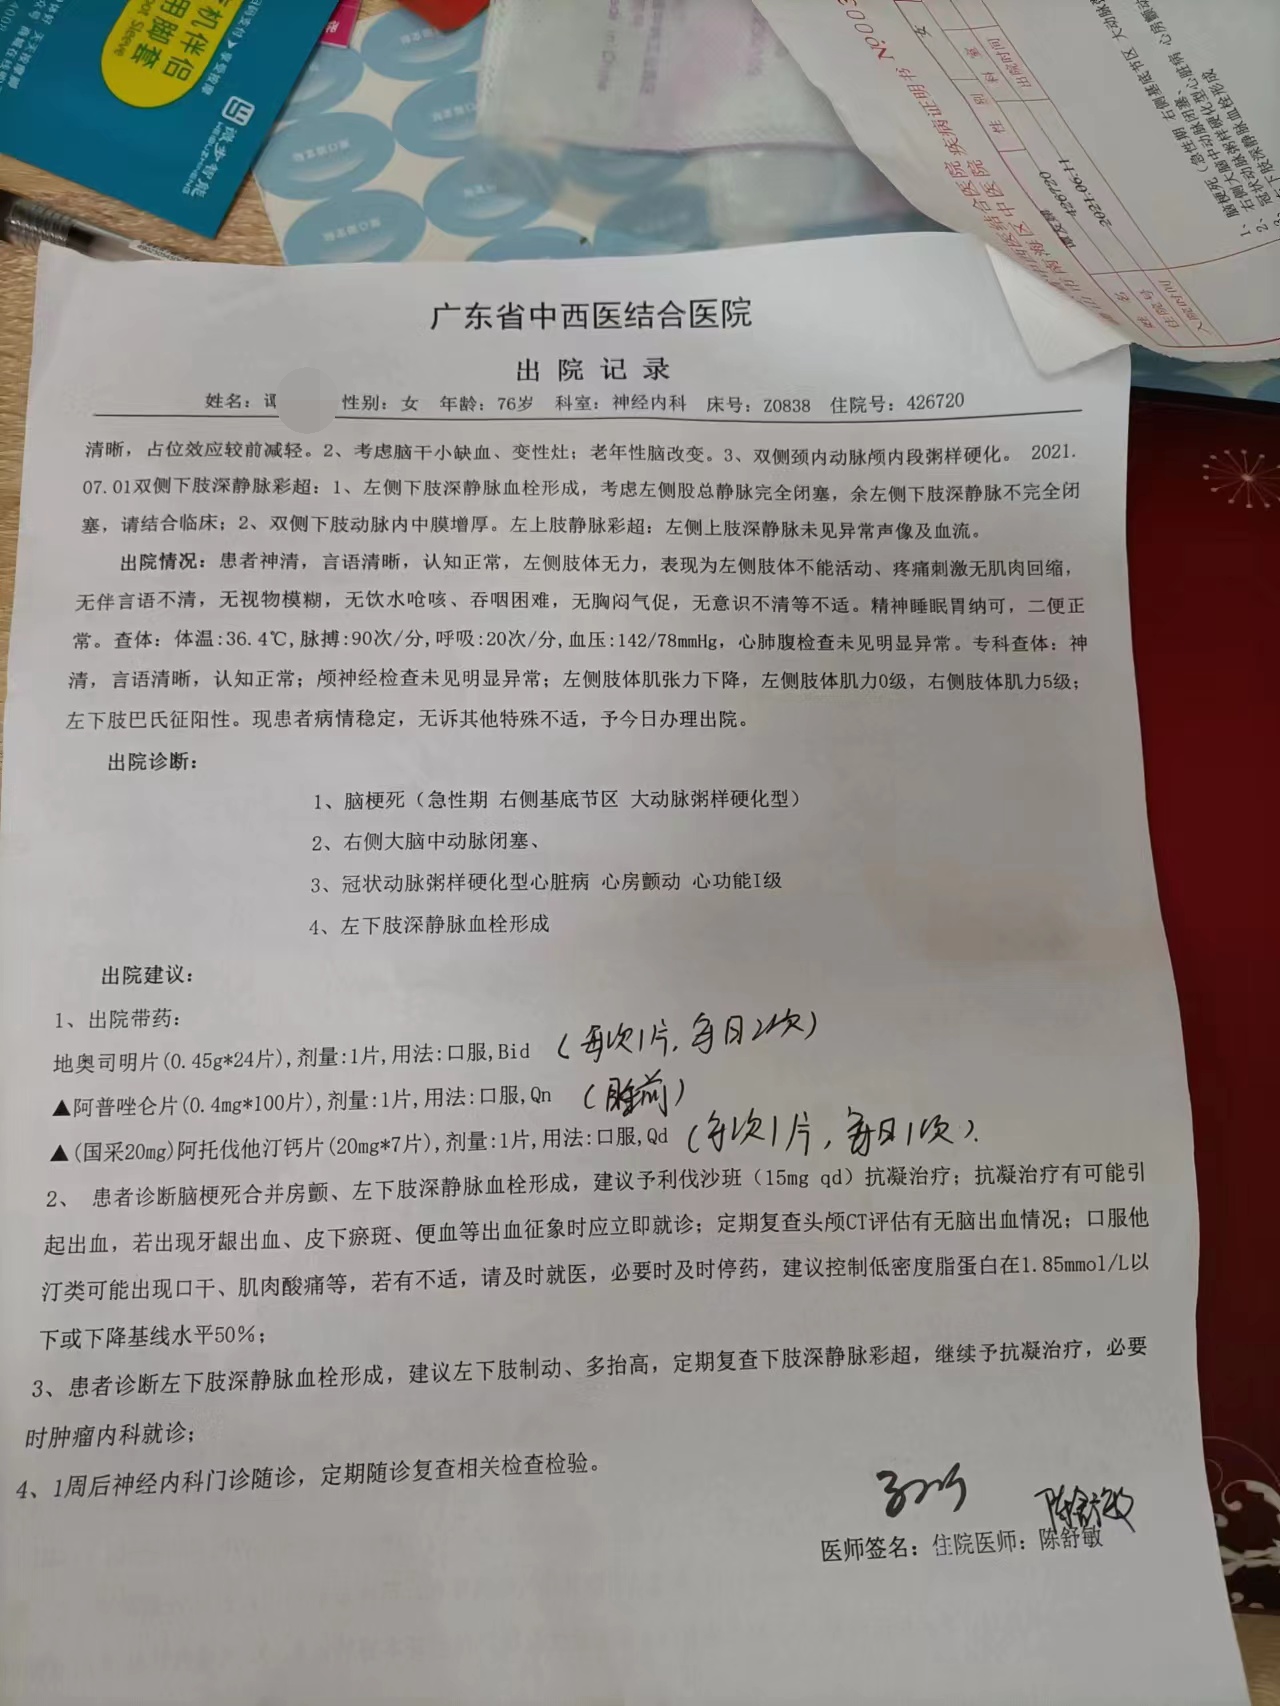 机伴侣
用脚套
Sleeve
微步智苑
疾病证明书 No.0003
女
性别
科室
出院时间
426720
2021.06.11
姓名
住院号
入院时间
1、脑梗死(急性期 右侧基底节区 大动脉
2、右侧大脑中动脉闭塞、
冠状动脉粥样硬化型心脏病 心房颤动
下肢深静脉血栓形成
广东省中西医结合医院
出院记录
姓名：谭 性别：女 年龄：76岁 科室：神经内科 床号：Z0838 住院号：426720
清晰，占位效应较前减轻。2、考虑脑干小缺血、变性灶；老年性脑改变。3、双侧颈内动脉颅内段粥样硬化。 2021.
07.01双侧下肢深静脉彩超：1、左侧下肢深静脉血栓形成，考虑左侧股总静脉完全闭塞，余左侧下肢深静脉不完全闭
塞，请结合临床；2、双侧下肢动脉内中膜增厚。左上肢静脉彩超：左侧上肢深静脉未见异常声像及血流。
出院情况：患者神清，言语清晰，认知正常，左侧肢体无力，表现为左侧肢体不能活动、疼痛刺激无肌肉回缩，
无伴言语不清，无视物模糊，无饮水呛咳、吞咽困难，无胸闷气促，无意识不清等不适。精神睡眠胃纳可，二便正
常。查体：体温:36.4℃,脉搏:90次/分,呼吸:20次/分,血压:142/78mmHg，心肺腹检查未见明显异常。专科查体：神
清，言语清晰，认知正常；颅神经检查未见明显异常；左侧肢体肌张力下降，左侧肢体肌力0级，右侧肢体肌力5级；
左下肢巴氏征阳性。现患者病情稳定，无诉其他特殊不适，予今日办理出院。
出院诊断：
1、脑梗死（急性期 右侧基底节区 大动脉粥样硬化型）
2、右侧大脑中动脉闭塞、
3、冠状动脉粥样硬化型心脏病 心房颤动 心功能I级
4、左下肢深静脉血栓形成
出院建议：
1、出院带药：
地奥司明片(0.45g*24片),剂量:1片,用法:口服,Bid (每次1片，每日2次)
▲阿普唑仑片(0.4mg*100片),剂量:1片,用法:口服,Qn (睡前)
▲(国采20mg)阿托伐他汀钙片(20mg*7片),剂量:1片,用法:口服,Qd (每次1片，每日1次).
2、 患者诊断脑梗死合并房颤、左下肢深静脉血栓形成，建议予利伐沙班（15mg qd）抗凝治疗；抗凝治疗有可能引
起出血，若出现牙龈出血、皮下瘀斑、便血等出血征象时应立即就诊；定期复查头颅CT评估有无脑出血情况；口服他
汀类可能出现口干、肌肉酸痛等，若有不适，请及时就医，必要时及时停药，建议控制低密度脂蛋白在1.85mmol/L以
下或下降基线水平50%；
3、患者诊断左下肢深静脉血栓形成，建议左下肢制动、多抬高，定期复查下肢深静脉彩超，继续予抗凝治疗，必要
时肿瘤内科就诊；
4、1周后神经内科门诊随诊，定期随诊复查相关检查检验。
陈舒敏
医师签名：住院医师：陈舒敏